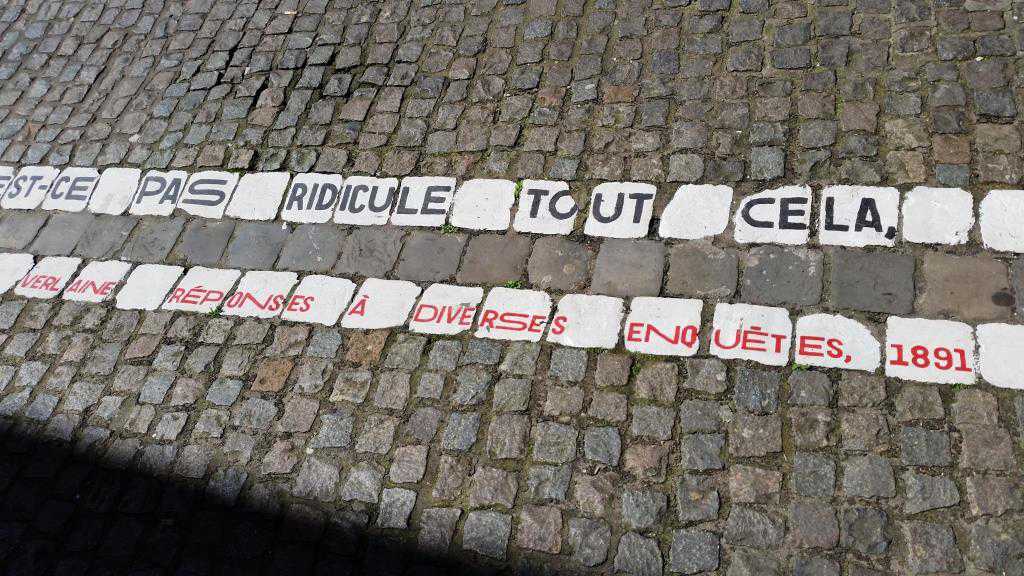 EST-CE PAS RIDICULE TOUT CELA,
VERLAINE RÉPONSES À DIVERSES ENQUÊTES, 1891